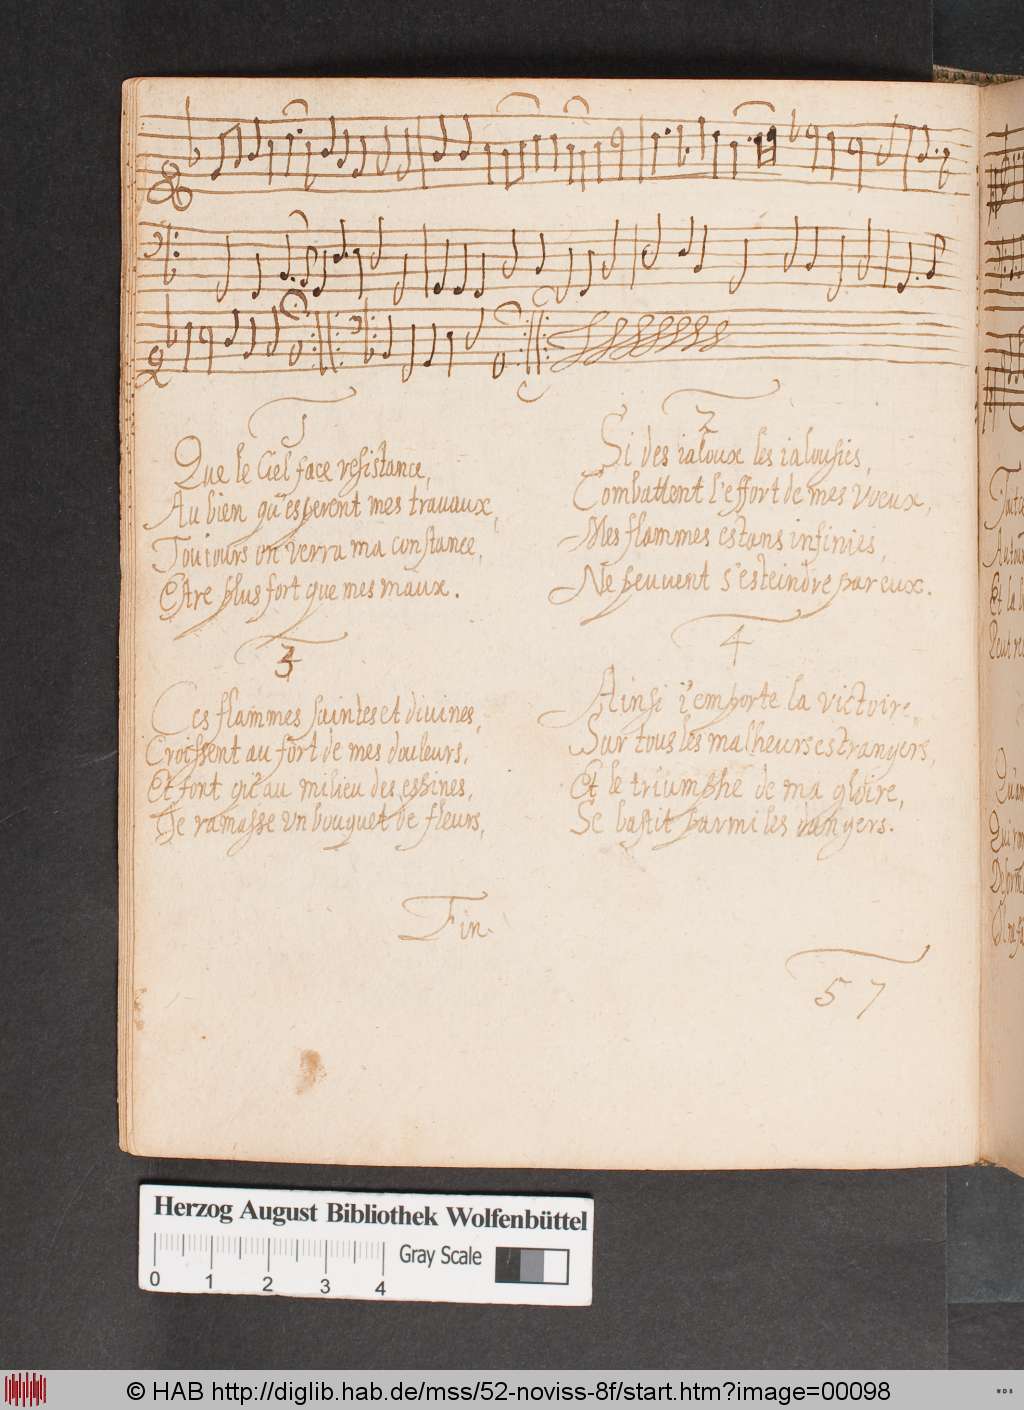 1
Que le Ciel face resistance,
Au bien qu'esperent mes travaux,
Toujours on verra ma constance,
Estre plus fort que mes maux.
2
Si des ialoux les ialousies,
Combattent l'effort de mes vœux,
Mes flammes estans infinies,
Ne peuvent s'esteindre par eux.
3
Ces flammes saintes et diuines,
Croissent au fort de mes douleurs,
Et font qu'au milieu des espines,
Je ramasse un bouquet de fleurs,
4
Ainsi i'emporte la victoire,
Sur tous les malheurs estrangers,
Et le triumphe de ma gloire,
Se bastit parmi les dangers.
Fin.
57
Herzog August Bibliothek Wolfenbüttel
Gray Scale
0 1 2 3 4
© HAB http://diglib.hab.de/mss/52-noviss-8f/start.htm?image=00098